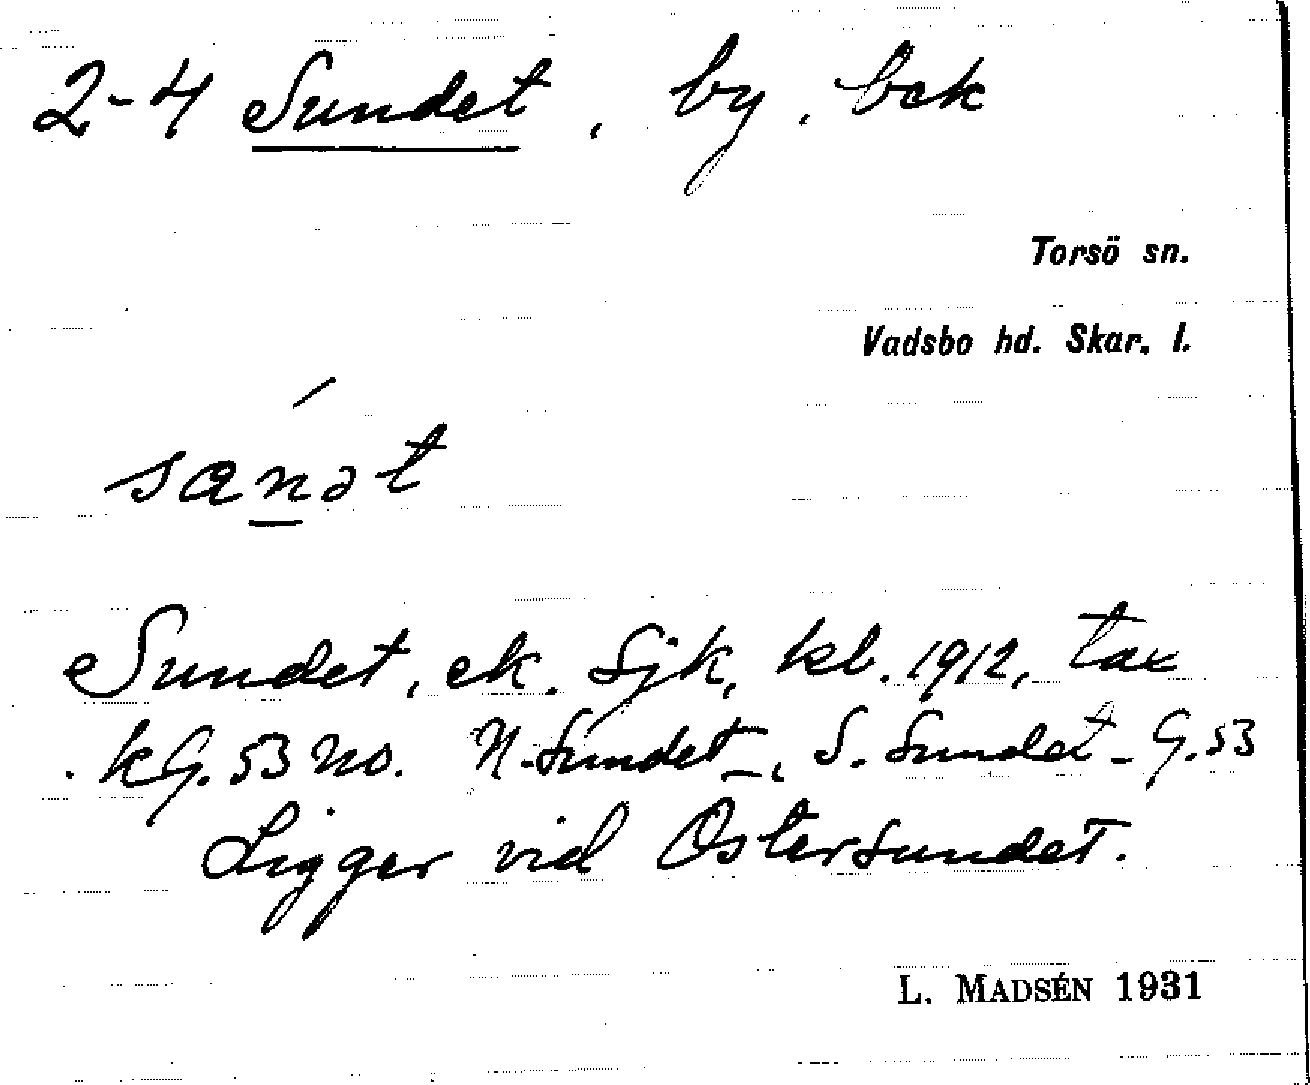 2-4 Sundet, by, bek
Torsö sn.
Vadsbo hd. Skar. l.
sanət
Sundet, ek. Sjk, kl. 1912, tax
. kG. 53 no. N. Sundet -, S. Sundet - G. 53
Ligger vid Östersundet.
L. MADSÉN 1931